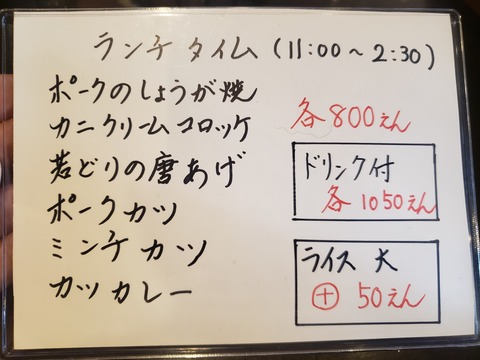 ランチタイム (11:00～2:30)
ポークのしょうが焼
カニクリームコロッケ
若どりの唐あげ
ポークカツ
ミンチカツ
カツカレー
各800えん
ドリンク付
各1050えん
ライス 大
⊕ 50えん